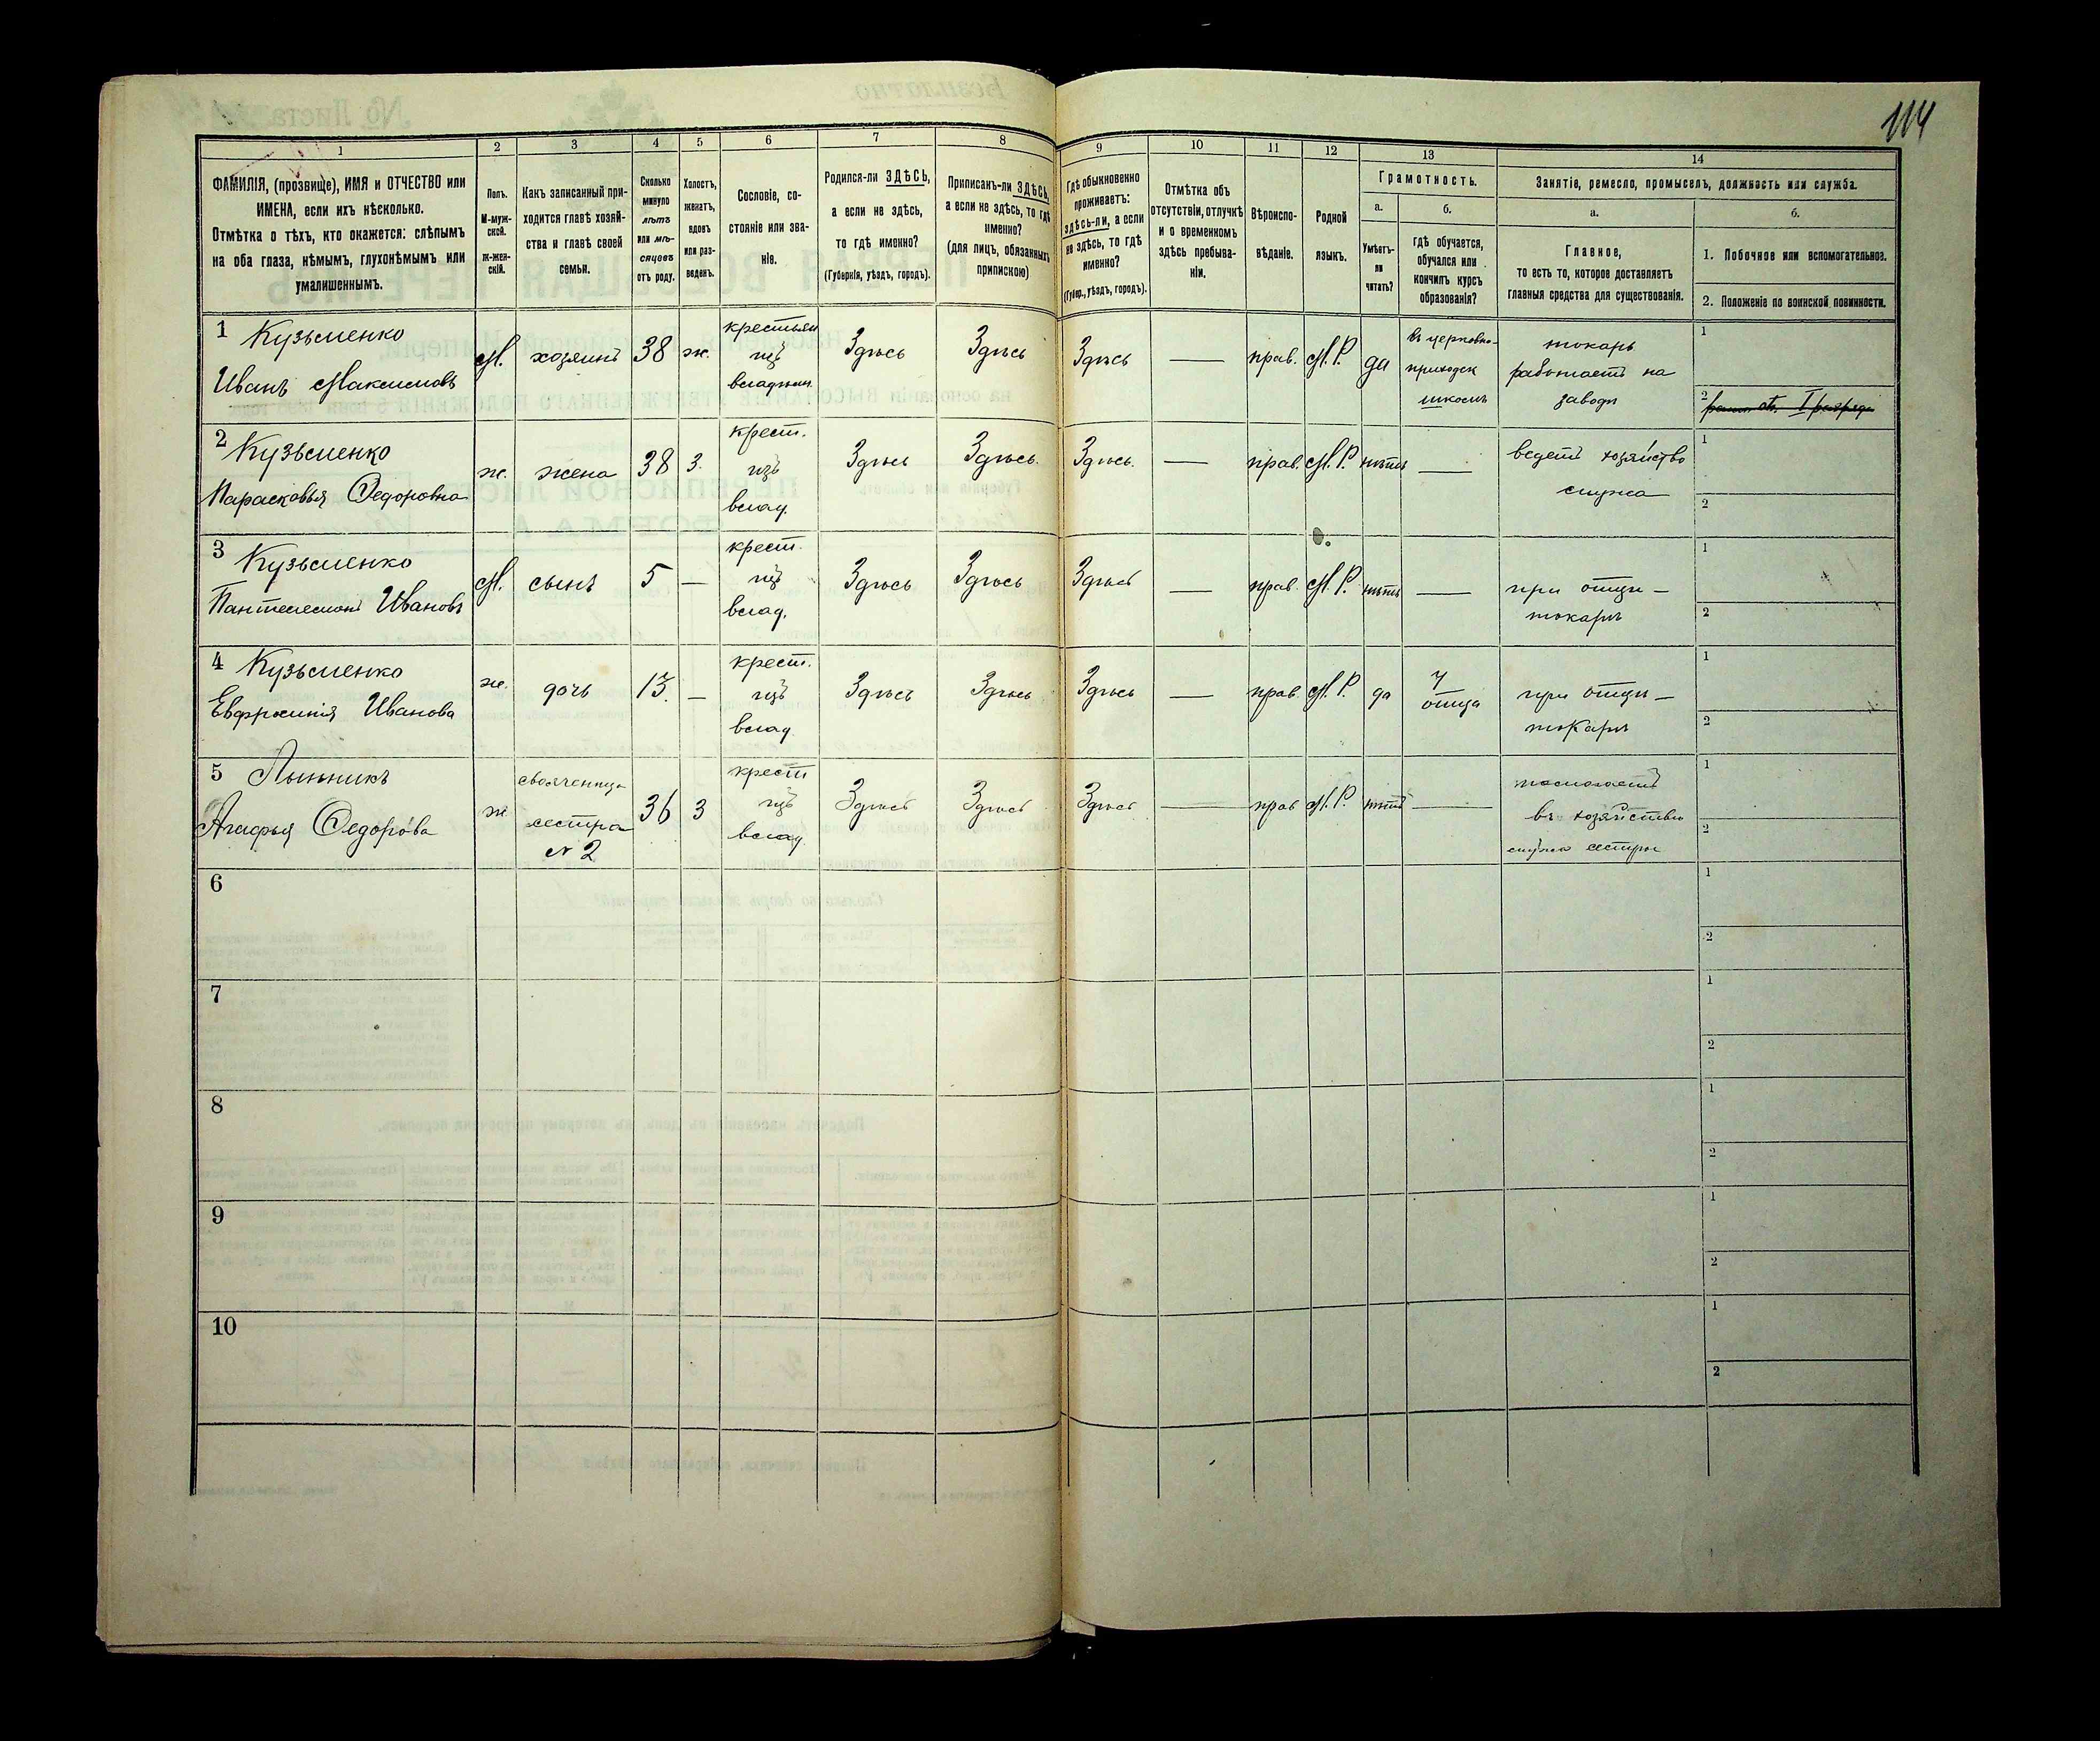 114
1
2
3
4
5
6
7
8
9
10
11
12
13
14
ФАМИЛІЯ, (прозвище), ИМЯ и ОТЧЕСТВО или
ИМЕНА, если ихъ нѣсколько.
Отмѣтка о тѣхъ, кто окажется: слѣпымъ
на оба глаза, нѣмымъ, глухонѣмымъ или
умалишеннымъ.
Полъ.
М-муж-
ской.
Ж-жен-
скій.
Какъ записанный при-
ходится главѣ хозяй-
ства и главѣ своей
семьи.
Сколько
минуло
лѣтъ
или мѣ-
сяцевъ
отъ роду.
Холостъ,
женатъ,
вдовъ
или раз-
веденъ.
Сословіе, со-
стояніе или зва-
ніе.
Родился-ли ЗДѢСЬ,
а если не здѣсь,
то гдѣ именно?
(Губернія, уѣздъ, городъ).
Приписанъ-ли ЗДѢСЬ,
а если не здѣсь, то гдѣ
именно?
(для лицъ, обязанныхъ
припискою)
Гдѣ обыкновенно
проживаетъ:
здѣсь-ли, а если
не здѣсь, то гдѣ
именно?
(Губер., уѣздъ, городъ).
Отмѣтка объ
отсутствіи, отлучкѣ
и о временномъ
здѣсь пребыва-
ніи.
Вѣроиспо-
вѣданіе.
Родной
языкъ.
Грамотность.
а.
б.
Умѣетъ-
ли
читать?
гдѣ обучается,
обучался или
кончилъ курсъ
образованія?
Занятіе, ремесло, промыселъ, должность или служба.
а.
б.
Главное,
то есть то, которое доставляетъ
главныя средства для существованія.
1. Побочное или вспомогательное.
2. Положеніе по воинской повинности.
1 Кузьменко
Иванъ Максимовъ
М. хозяинъ 38 ж.
крестьян
изъ
владѣльч.
Здѣсь Здѣсь Здѣсь — прав. М.Р. да
въ церковно-
приходск
школѣ
токарь
работаетъ на
заводѣ
1
2
2 Кузьменко
Парасковья Федоровна
ж. жена 38 з.
крест.
изъ
влад.
Здѣсь Здѣсь. Здѣсь. — прав. М.Р. нѣтъ —
ведетъ хозяйство
мужа
1
2
3 Кузьменко
Пантелеимонъ Ивановъ
М. сынъ 5 —
крест.
изъ
влад.
Здѣсь Здѣсь Здѣсь — прав. М.Р. нѣтъ —
при отцѣ —
токарѣ
1
2
4 Кузьменко
Евфросинія Иванова
ж. дочь 13. —
крест.
изъ
влад.
Здѣсь Здѣсь Здѣсь — прав. М.Р. да
у
отца
при отцѣ —
токарѣ
1
2
5 Лынникъ
Агафья Федорова
ж
свояченица
сестра
№ 2
36 з
крест
изъ
влад.
Здѣсь Здѣсь Здѣсь — прав М.Р. нѣтъ —
помогаетъ
въ хозяйствѣ
мужа сестры
1
2
6
1
2
7
1
2
8
1
2
9
1
2
10
1
2